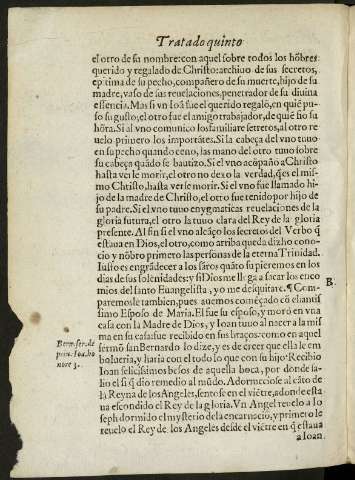 Tratado quinto
el otro de su nombre: con aquel sobre todos los hõbres
querido y regalado de Christo: archiuo de sus secretos,
epitima de su pecho, compañero de su muerte, hijo de su
madre, vaso de sus reuelaciones, penetrador de su diuina
essencia. Mas si vn Ioã fue el querido regalõ, en quiẽ pu-
so su gusto, el otro fue el amigo trabajador, de quiẽ fio su
hõra. Si al vno comunico los familiares secretos, al otro re
uelo primero los importãtes. Si la cabeça del vno tuuo
en su pecho quando ceno, las mano del otro tuuo sobre
su cabeça quãdo se bautizo. Si el vno acõpaño a Christo
hasta verle morir, el otro no dexo la verdad, q̃ es el mis-
mo Christo, hasta verle morir. Si el vno fue llamado hi-
jo de la madre de Christo, el otro fue tenido por hijo de
su padre. Si el vno tuuo enygmaticas reuelaciones de la
gloria futura, el otro la tuuo clara del Rey de la gloria
presente. Al fin si el vno alcãço los secretos del Verbo q̃
estaua en Dios, el otro, como arriba queda dicho cono-
cio y nõbro primero las personas de la eterna Trinidad.
Iusto es engrãdecer a los
dias de sus solẽnidades: y si Dios me llega a sacar los enco
mios del santo Euangelista, y o me desquitare. ¶ Com-
B.
paremosle tambien, pues auemos começado cõ el santif
simo Esposo de Maria. El fue su esposo, y moro en vna
casa con la Madre de Dios, y Ioan tuuo al nacer a la mis
ma en su casa: fue recibido en sus braços: como en aquel
Bern. ser. de
priu. Ioa. ho
nore 3.
sermõ san Bernardo lo dize, y es de creer que ella le em
bolueria, y haria con el todo lo que con su hijo: Recibio
Ioan felicissimos besos de aquella boca, por donde sa-
lio el si q̃ dio remedio al mũdo. Adormeciose al cãto de
la Reyna de los Angeles, sentose en el viẽtre, adonde esta
ua escondido el Rey de la gloria. Vn Angel reuelo a Io
seph dormido el mysterio de la encarnaciõ, y primero le
reuelo el Rey de los Angeles desde el viẽtre en q̃ estaua
a Ioan.